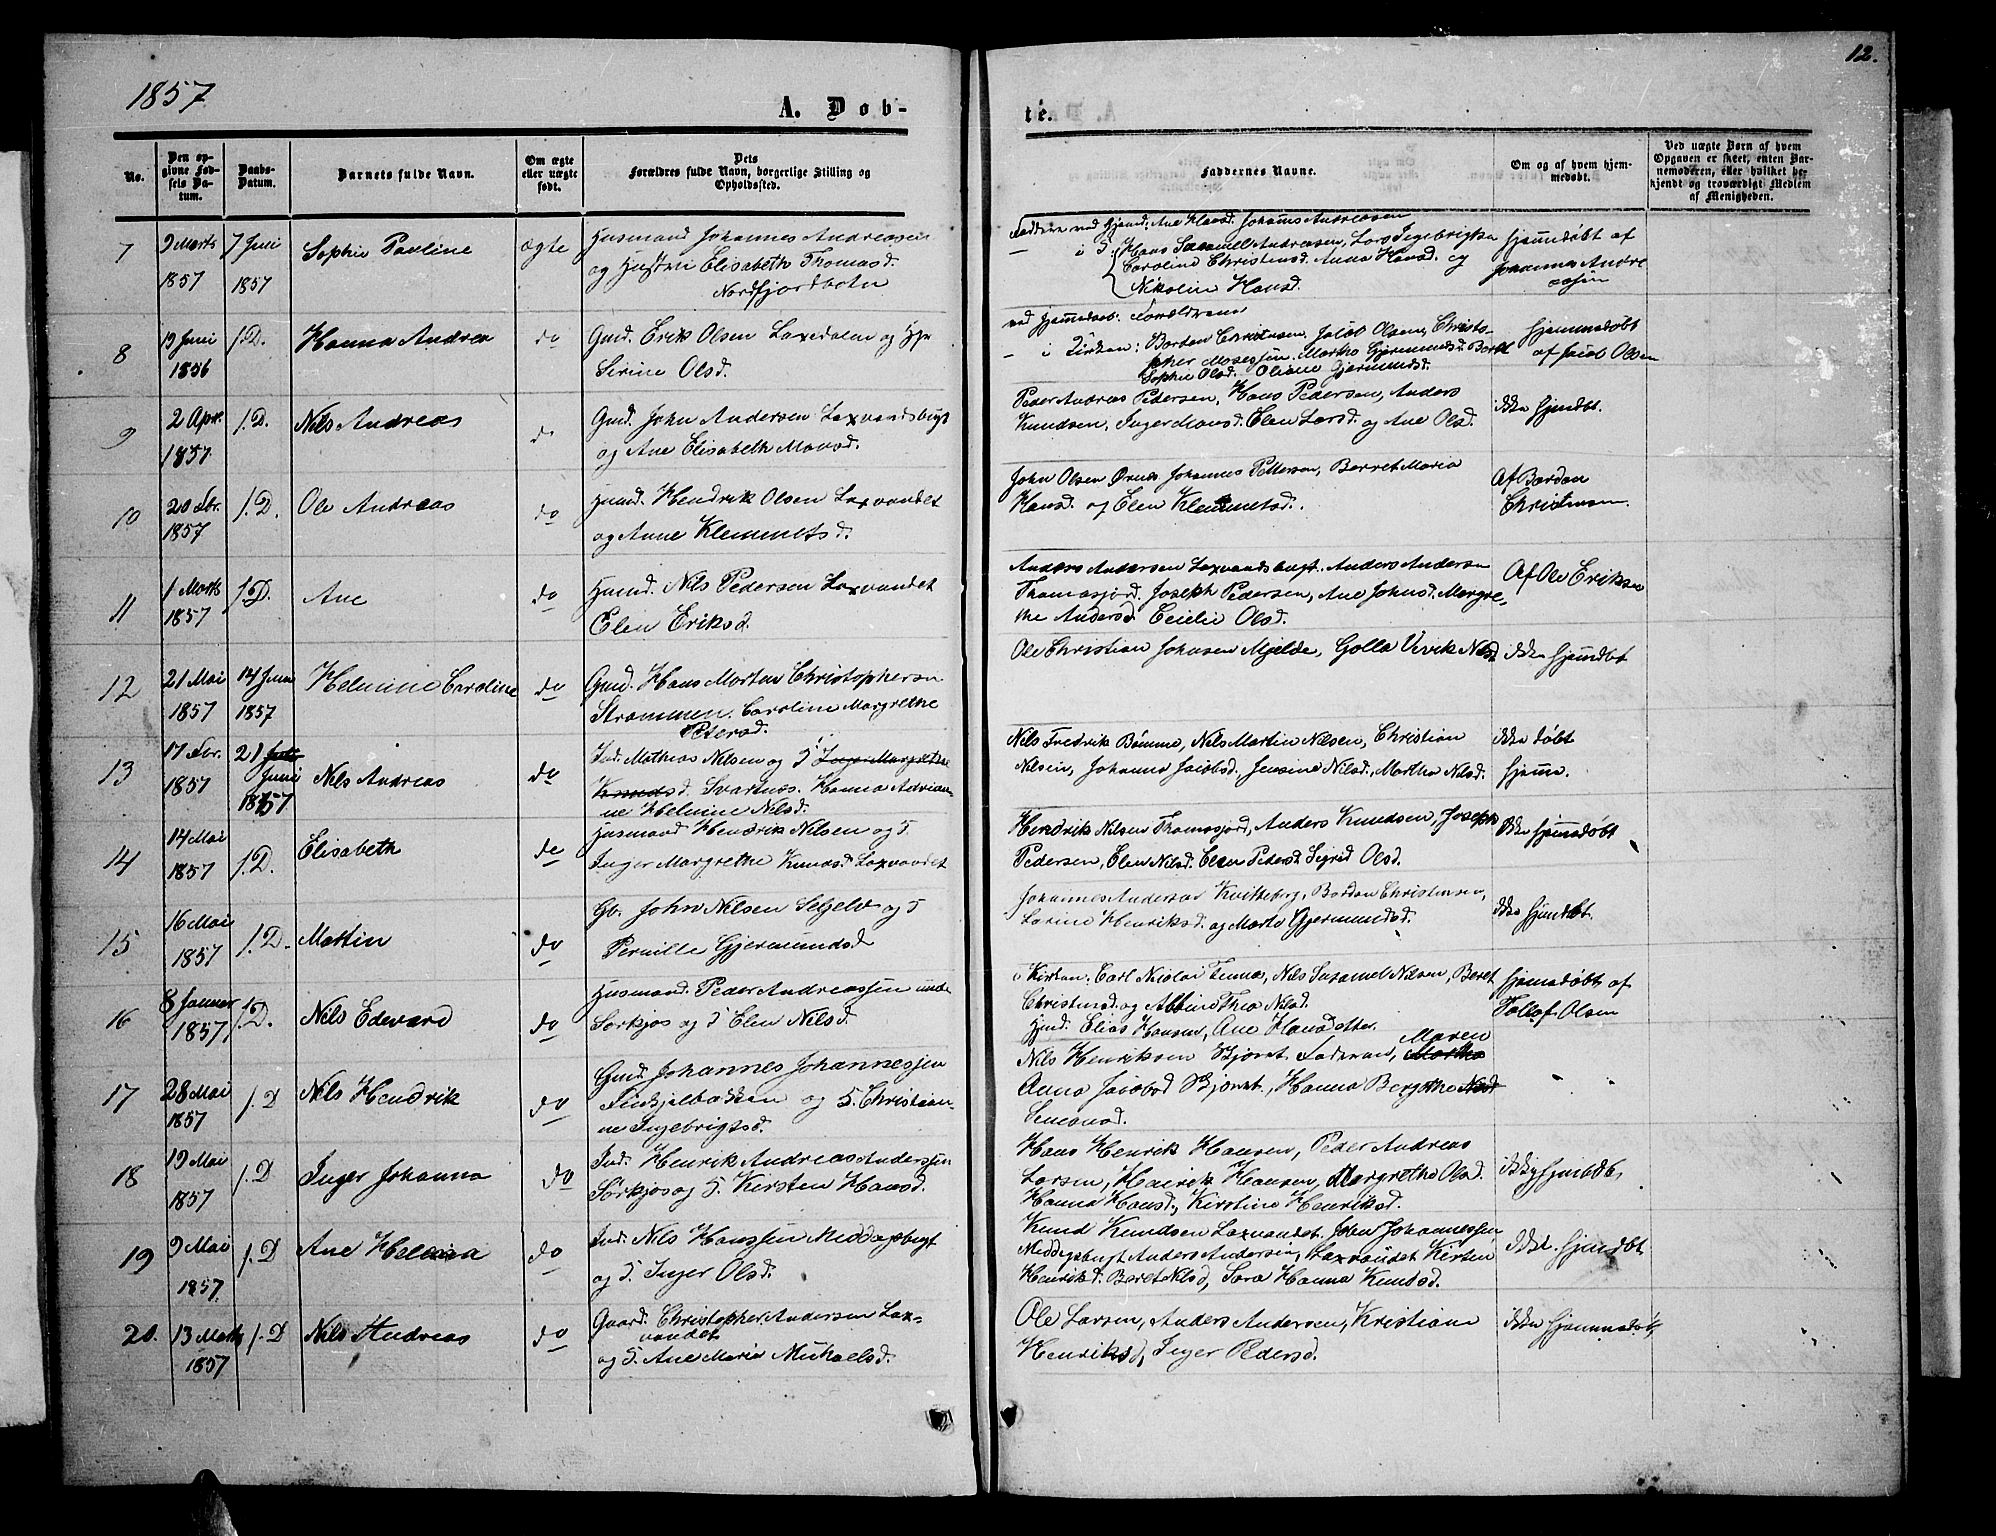 1857
12.
A. Døb-
te.
No.
Den op-
givne Fød-
sels Da-
tum.
Daabs-
Datum.
Barnets fulde Navn.
Om ægte
eller uægte
født.
Dets
Forældres fulde Navn, borgerlige Stilling og
Opholdssted.
Faddernes Navne.
Om og af hvem hjem-
medøbt.
Ved uægte Børn af hvem
Opgaven er skeet, enten Bar-
nemoderen, eller hvilket be-
kjendt og troværdigt Medlem
af Menigheden.
7
9 Marts
1857
7 Juni
1857
Sophie Pauline
ægte
Husmand Johannes Andreassen
og Hustru Elisabeth Thomasd.
Nordfjordbotn
Faddere ved Hjemd: Ane Hansd. Johannes Andreassen
Hans Samuel Andreassen, Lars Ingebrigtsen
Caroline Christensd. Anna Hansd. og
Nikoline Hansd.
Hjemmdøbt af
Johannes Andre
assen
8
19 Juni
1856
f. D.
Hanna Andrea
do
Gmd. Erik Olsen Laxedalen og H
Sirine Olsd.
ved Hjemmedaab. Forældrene
- i Kirken: Bordon Christensen, Jacob Olsen, Christo-
pher Mosessen. Martha Gjermundsd. Berit
Sophie Olsd. Oliane Gjermundsd.
Hjemmedøbt
af Jacob Olsen
9
2 Apr.
1857
f. D.
Nils Andreas
do
Gmd. John Andersen Laxvandsbugt
og Ane Elisabeth Monsd.
Peder Andreas Pedersen, Hans Pedersen, Anders
Knudsen, Inger Monsd. Elen Larsd. og Ane Olsd.
ikke hjemdbt.
10
20 Fbr.
1857
f. D.
Ole Andreas
do
Husmd. Hendrik Olsen Laxvandet
og Anne Klemmetsd.
John Olsen Ørnes Johannes Pettersen, Berret Maria
Hansd. og Elen Klemmetsd.
Af Bordon
Christensen.
11
1 Marts
1857
f. D.
Ane
do
Husmd. Nils Pedersen Laxvandet
Elen Eriksd.
Anders Andersen Laxvandsbugt. Anders Andersen
Thomasjord. Joseph Pedersen, Ane Johnsd. Margre-
the Andersd. Cecilie Olsd.
Af Ole Eriksen
12
21 Mai
1857
14 Juni
1857
Helmine Caroline
do
Gmd. Hans Morten Christophersen
Strømmen. Caroline Margrethe
Petersd.
Ole Christian Johnsen Mjelde, Golla Vivik Nilsd
ikke hjemdbt
13
17 Fbr.
1857
21
Juni
1857
Nils Andreas
do
Ind. Mathias Nilsen og H Inger Margrethe
Knudsd. Svartnes. Hanna Adrian-
ne Helmine Nilsd.
Nils Fredrik Bomme, Nils Martin Nilsen, Christian
Nilsen, Johanna Jacobsd. Jensine Nilsd., Martha Nilsd.
ikke døbt
hjemme.
14
14 Mai
1857
f. D.
Elisabeth
do
Husmand Hendrik Nilsen og H.
Inger Margrethe Knudsd. Laxvandet
Hendrik Nilsen Thomasjord, Anders Knudsen, Joseph
Pedersen, Elen Nilsd. Elen Pedersd. Sigrid Olsd.
Ikke hjemmedøbt
15
16 Mai
1857
f. D.
Martin
do
Gb. John Nilsen Selgelv og H
Pernille Gjermundsd
Johannes Andersen Kvitteberg, Bordon Christensen,
Larine Henriksd. og Marte Gjermundsd.
ikke hjemdbt.
16
8 Januar
1857
f. D.
Nils Edevard
do
Husmand. Peder Andreassen
Sørkjos og H Elen Nilsd.
i Kirken: Carl Nicolai Finnes, Nils Samuel Nilsen, Beret
Christensd. og Albine Thea Nilsd.
Hjmd. Elias Hansen, Ane Hansdatter.
Hjemdøbt af
Tollef Olsen
17
28 Mai
1857
f. D
Nils Hendrik
do
Gmd. Johannes Johannessen
Finkjelbakken og H. Christian-
ne Ingebrigtsd.
Nils Henriksen Bjørnt. Faderen, Maren
Martha
Anna Jacobsd Bjørnt., Hanna Bergithe Nilsd
Simonsd.
18
19 Mai
1857
f. D
Inger Johanna
do
Ind. Henrik Andreas Andersen
Sørkjos og H. Kirsten Hansd.
Hans Henrik Hansen, Peder Andreas
Larsen, Henrik Hansen, Margrethe Olsd.
Hanna Hansd., Kirstine Henriksd.
ikke hjemdb.
19
9 Mai
1857
f. D
Ane Helena
do
Ind. Nils Hanssen Middagsbugt
og H. Inger Olsd.
Knud Knudsen Laxvandet. John Johannessen
Middagsbugt Anders Andersen, Laxvandet Kirsten
Henriksd. Beret Nilsd, Sara Hanna Knudsd.
ikke hjemdbt
20.
13 Marts
1857
f. D
Nils Andreas
do
Gaard. Christopher Andersen Lax-
vandet
og H. Ane Maria Michaelsd.
Ole Larsen, Anders Andersen, Kristiane
Henriksd, Inger Pedersd.
ikke hjemmedøbt